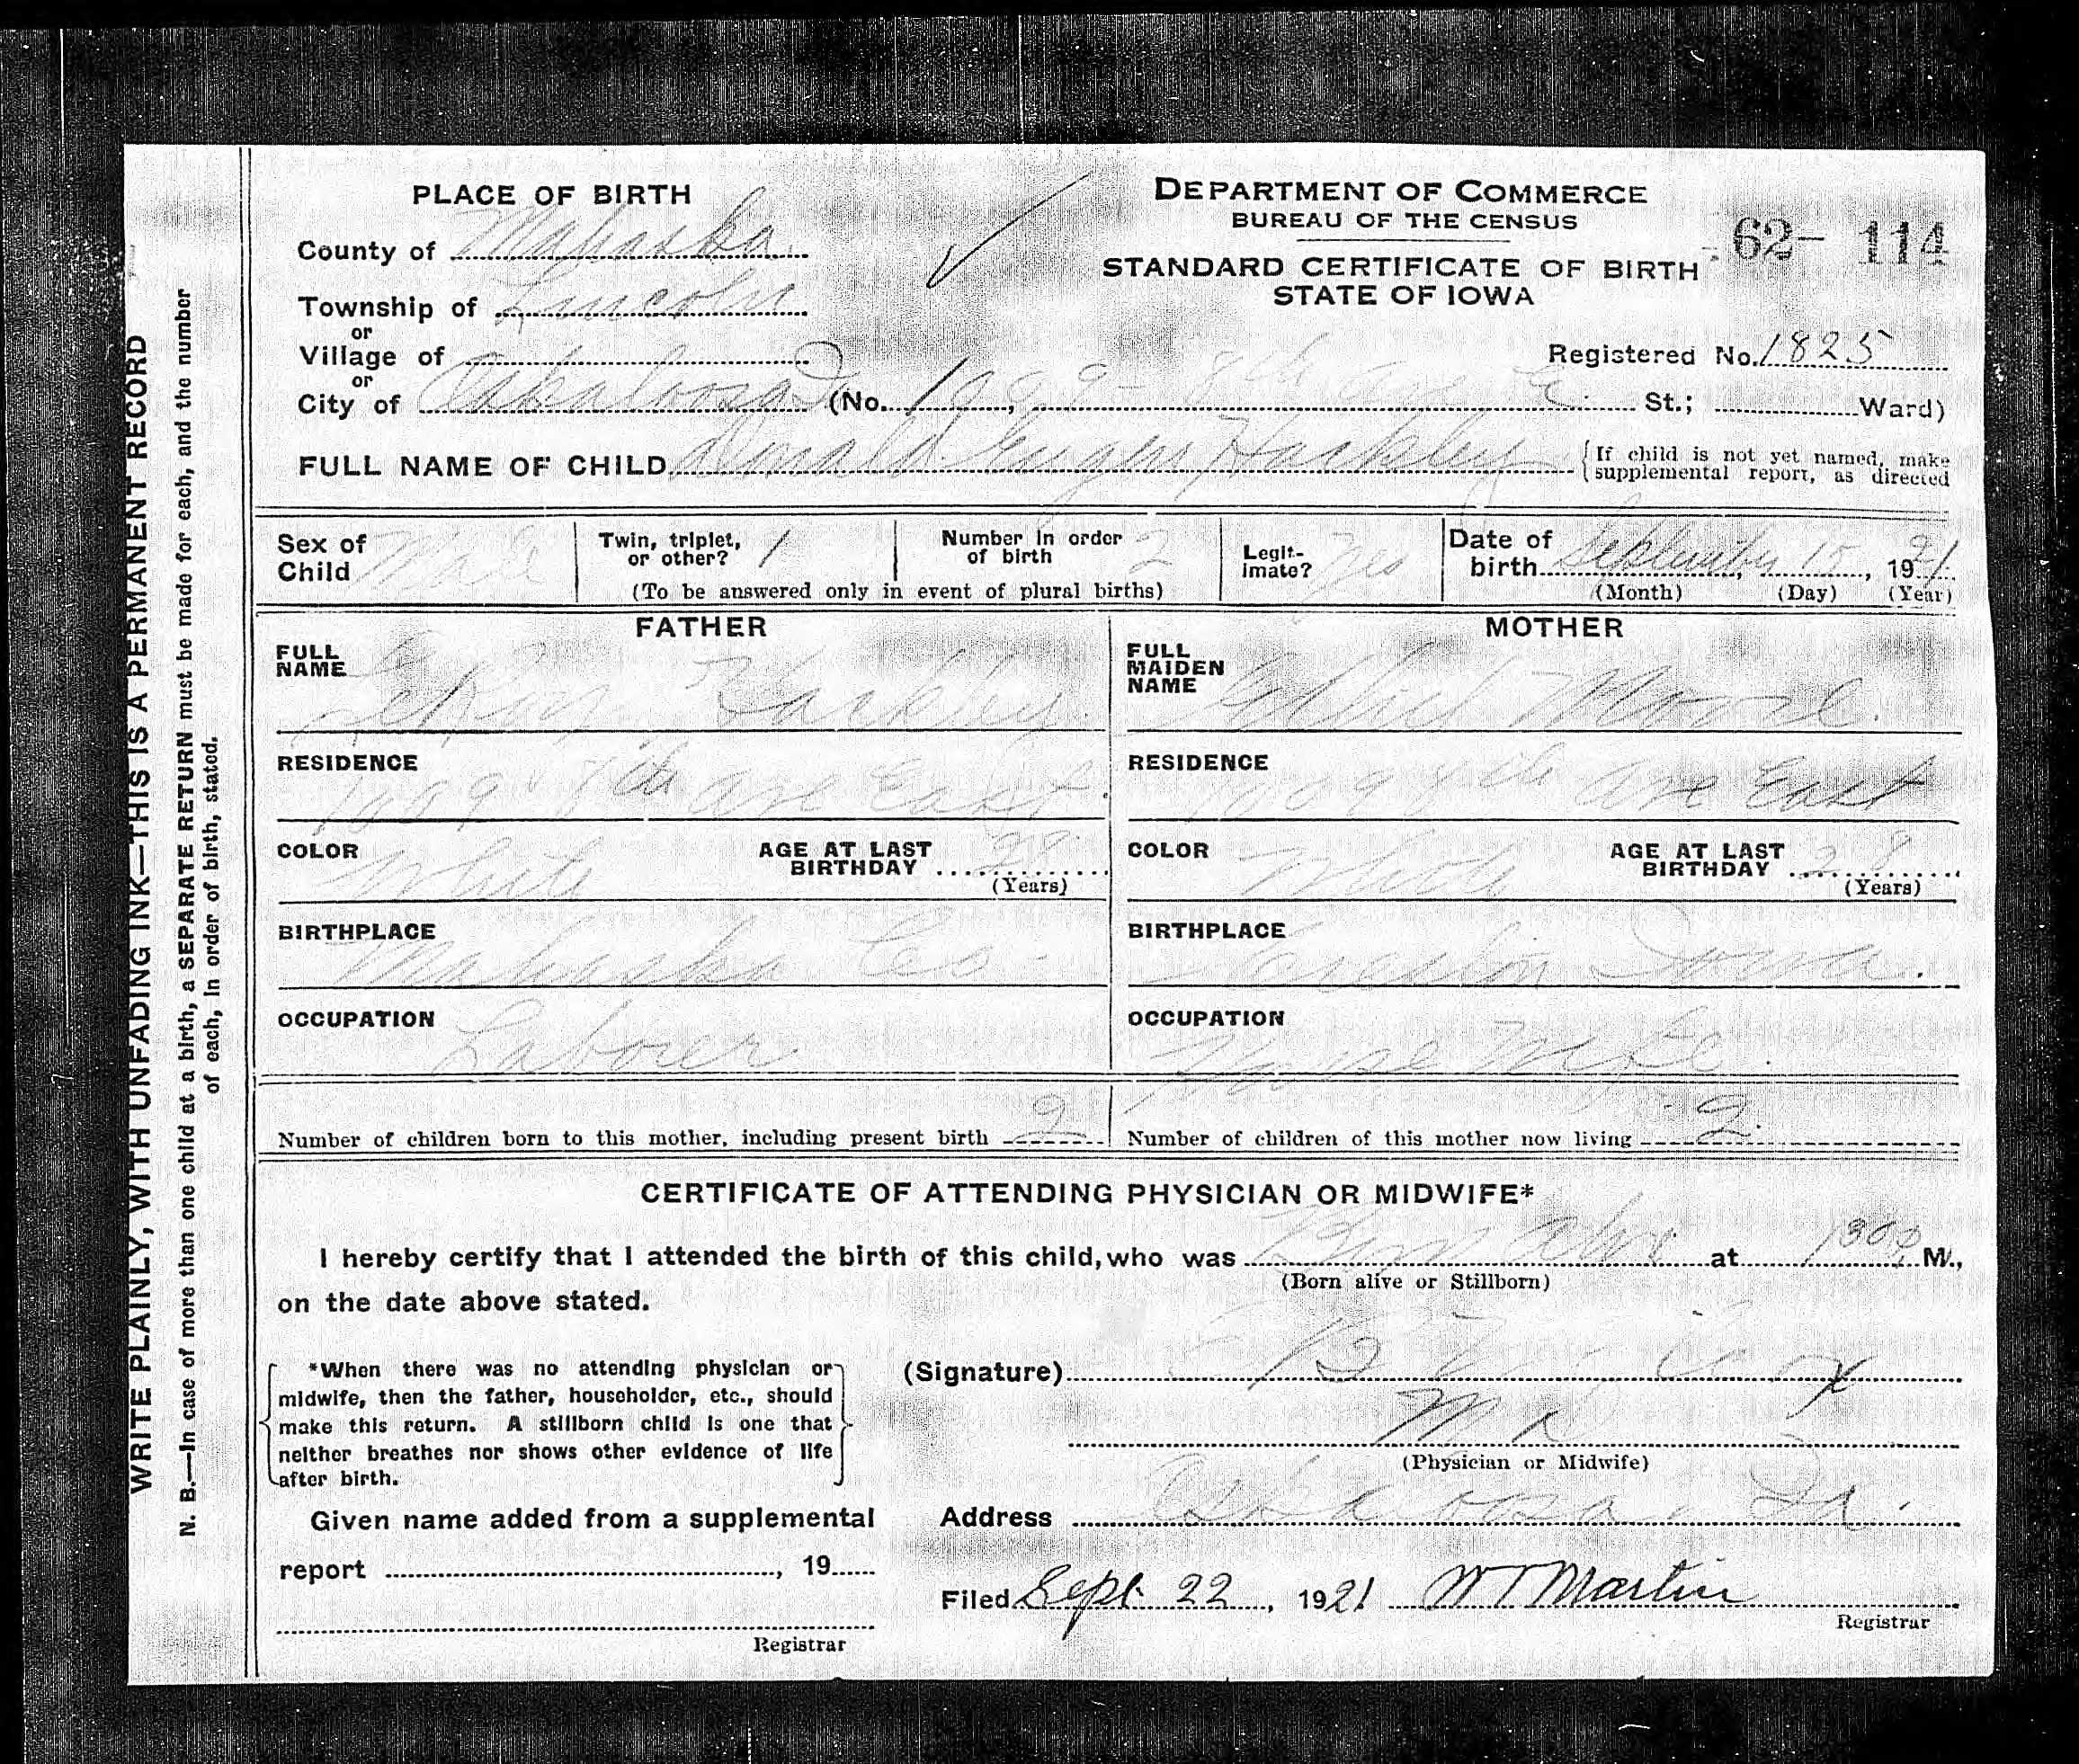 PLACE OF BIRTH
County of Mahaska
Township of Lincoln
or
Village of
or
City of Oskaloosa (No. 1009 - 8th ave E St.; Ward)
DEPARTMENT OF COMMERCE
BUREAU OF THE CENSUS
STANDARD CERTIFICATE OF BIRTH
STATE OF IOWA
62- 114
Registered No. 1825
FULL NAME OF CHILD Donald Eugene Hackley
{If child is not yet named, make
supplemental report, as directed
Sex of Child Male
Twin, triplet, or other? 1
Number in order of birth 2
(To be answered only in event of plural births)
Legitimate? Yes
Date of birth September 15, 1921
(Month) (Day) (Year)
FATHER
FULL NAME LeRoy Hackley
RESIDENCE 1009 8th ave East
COLOR White
AGE AT LAST BIRTHDAY
(Years)
BIRTHPLACE Mahaska Co
OCCUPATION Laborer
MOTHER
FULL MAIDEN NAME Moore
RESIDENCE 1009 8th ave East
COLOR White
AGE AT LAST BIRTHDAY 28
(Years)
BIRTHPLACE Creston Iowa.
OCCUPATION House Wife
Number of children born to this mother, including present birth 2
Number of children of this mother now living 2
CERTIFICATE OF ATTENDING PHYSICIAN OR MIDWIFE*
I hereby certify that I attended the birth of this child, who was Born alive at 130 P M.,
(Born alive or Stillborn)
on the date above stated.
*When there was no attending physician or
midwife, then the father, householder, etc., should
make this return. A stillborn child is one that
neither breathes nor shows other evidence of life
after birth.
(Signature)
M D
(Physician or Midwife)
Given name added from a supplemental
report , 19
Registrar
Address Oskaloosa, Ia.
Filed Sept. 22, 1921 W T Martin
Registrar
WRITE PLAINLY, WITH UNFADING INK—THIS IS A PERMANENT RECORD
N. B.—In case of more than one child at a birth, a SEPARATE RETURN must be made for each, and the number
of each, in order of birth, stated.